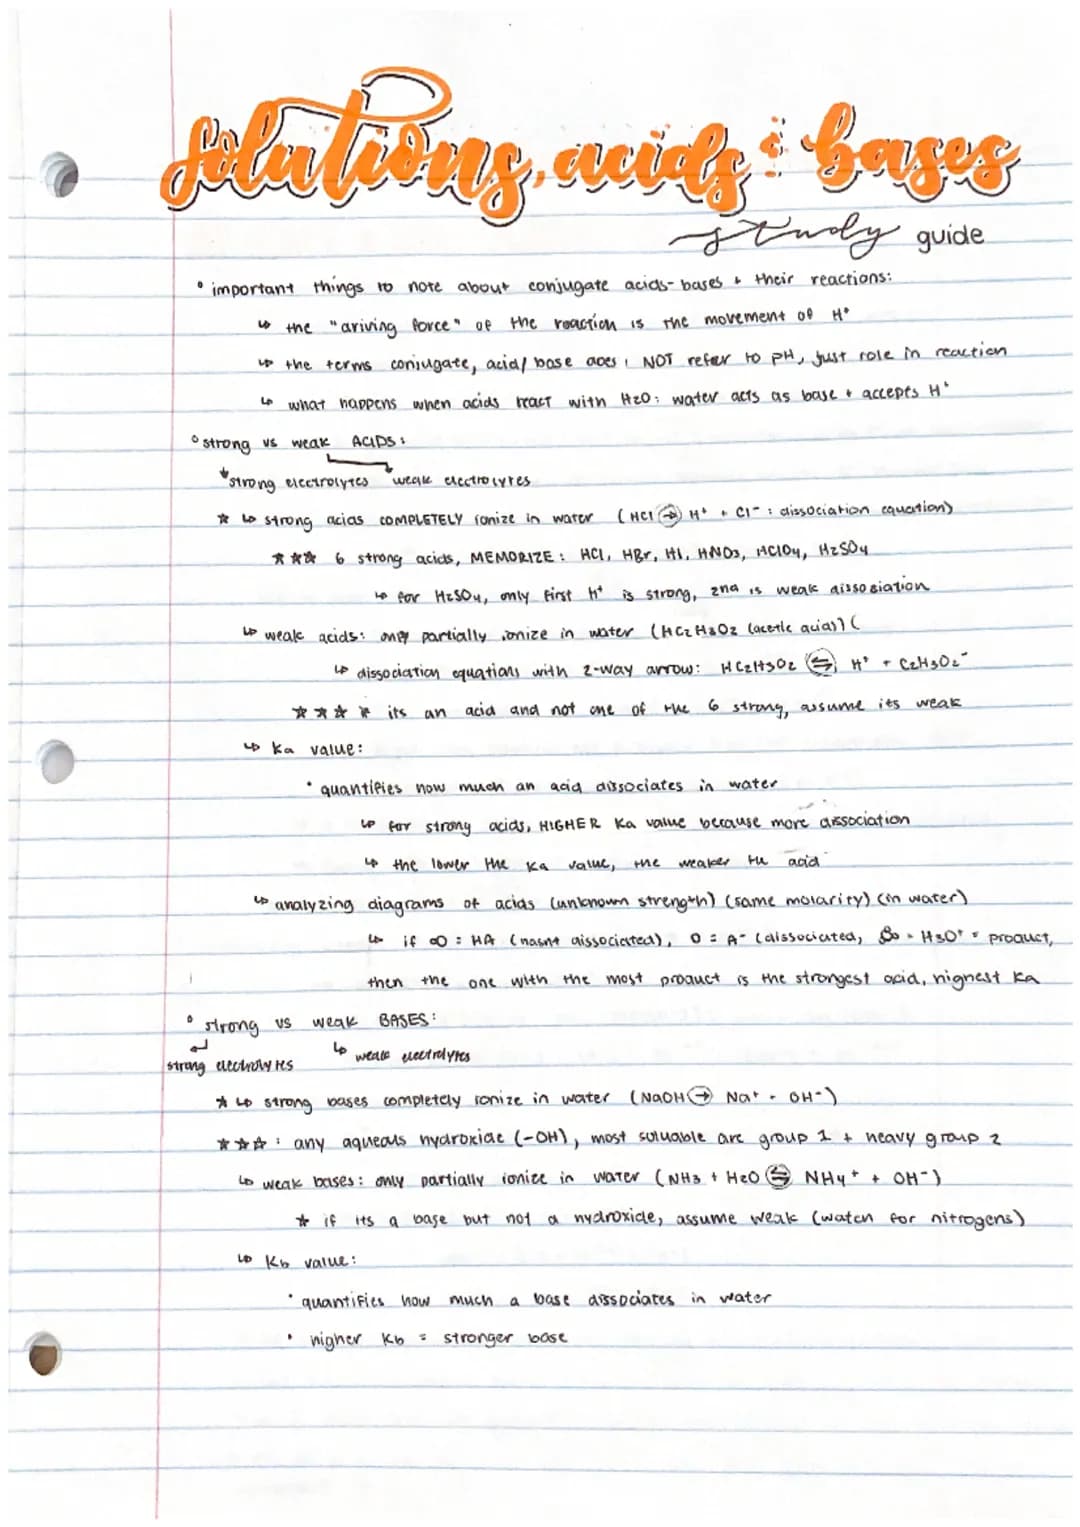 Solutions, acids & bases
study guide
° important things to note about conjugate acids-bases + their reactions:
↳ the "driving force" of the reaction is the movement of H⁺
↳ the terms conjugate, acid/base does NOT refer to pH, just role in reaction
↳ what happens when acids react with H₂O: water acts as base + accepts H⁺
° strong vs weak ACIDS:
strong electrolytes weak electrolytes
* ↳ strong acids COMPLETELY ionize in water (HCl → H⁺ + Cl⁻ : dissociation equation)
*** 6 strong acids, MEMORIZE: HCl, HBr, HI, HNO₃, HClO₄, H₂SO₄
↳ for H₂SO₄, only first H⁺ is strong, 2nd is weak dissosiation
↳ weak acids: only partially ionize in water (HC₂H₃O₂ (acetic acid)) (
↳ dissociation equations with 2-way arrow: HC₂H₃O₂ ⇆ H⁺ + C₂H₃O₂⁻
*** * its an acid and not one of the 6 strong, assume its weak
↳ Ka value:
• quantifies how much an acid dissociates in water
↳ for strong acids, HIGHER Ka value because more dissociation
↳ the lower the Ka value, the weaker the acid
↳ analyzing diagrams of acids (unknown strength) (same molarity) (in water)
↳ if ∞ = HA (hasnt dissociated), O = A⁻ (dissociated, = H₃O⁺ = product,
then the one with the most product is the strongest acid, highest Ka
° strong vs weak BASES:
↳ weak electrolytes
strong electrolytes
* ↳ strong bases completely ionize in water (NaOH → Na⁺ + OH⁻)
*** : any aqueous hydroxide (-OH), most soluable are group 1 + heavy group 2
↳ weak bases: only partially ionize in water (NH₃ + H₂O ⇆ NH₄⁺ + OH⁻)
* if its a base but not a hydroxide, assume weak (watch for nitrogens)
↳ Kb value:
• quantifies how much a base dissociates in water
• higher Kb = stronger base